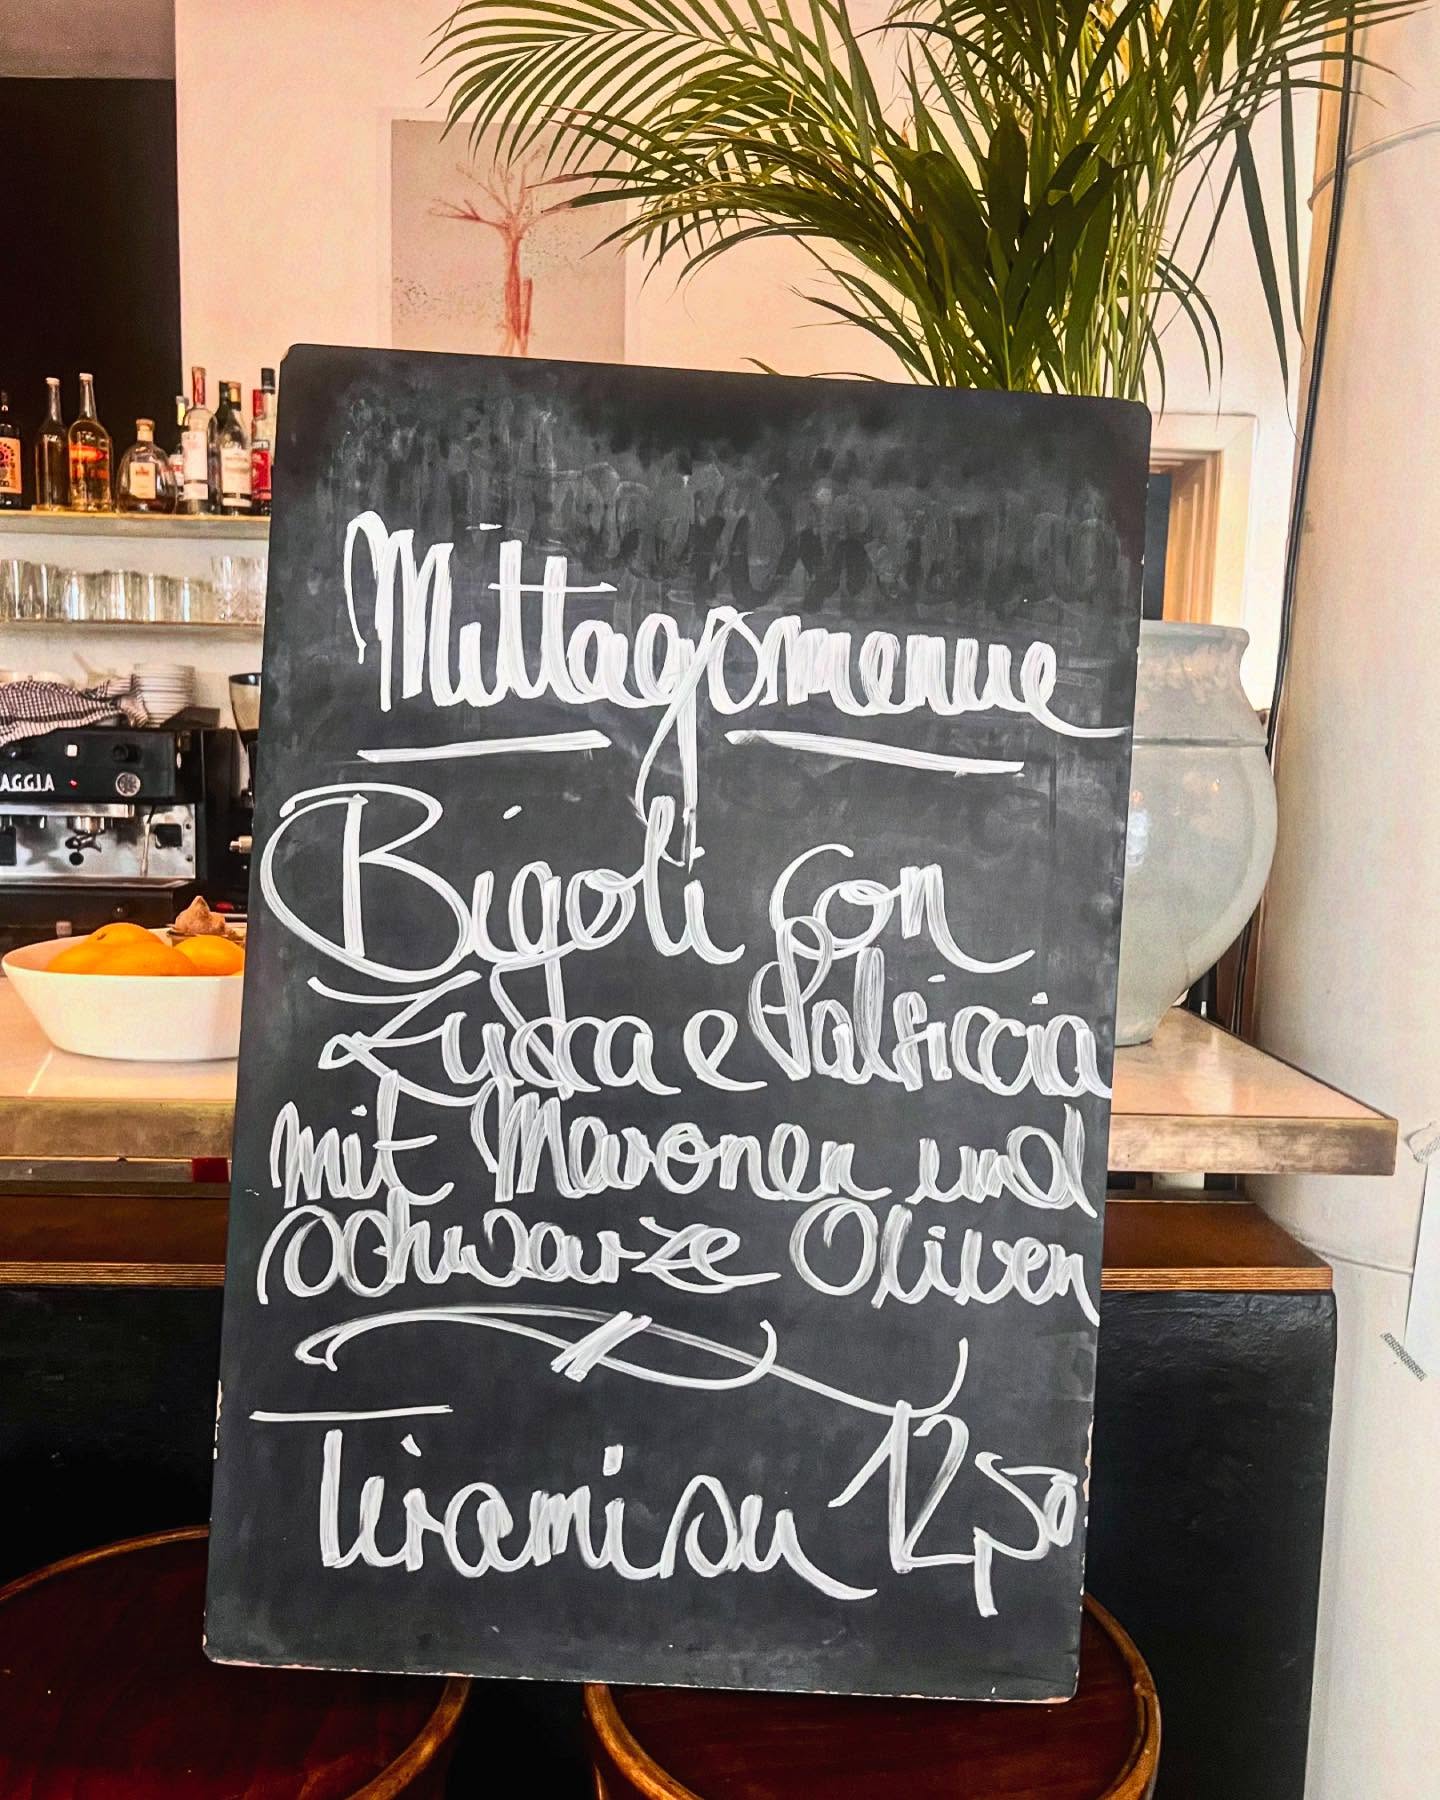 AGGIA
Mittagsmenue
Bigoli con
Zucca e Salsiccia
mit Maronen und
schwarze Oliven
Tiramisu 12,50